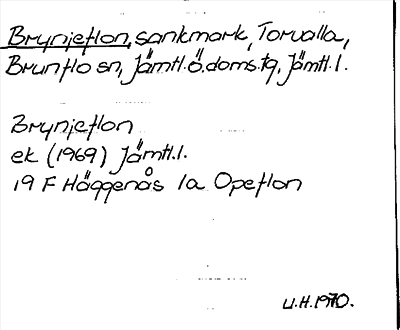 Brynjeflon, sankmark, Torvalla,
Brunflo sn, Jämtl.ö.doms.tg, Jämtl.l.
Brynjeflon
ek (1969) Jämtl.l.
19 F Häggenås 1a Opeflon
U.H.1970.